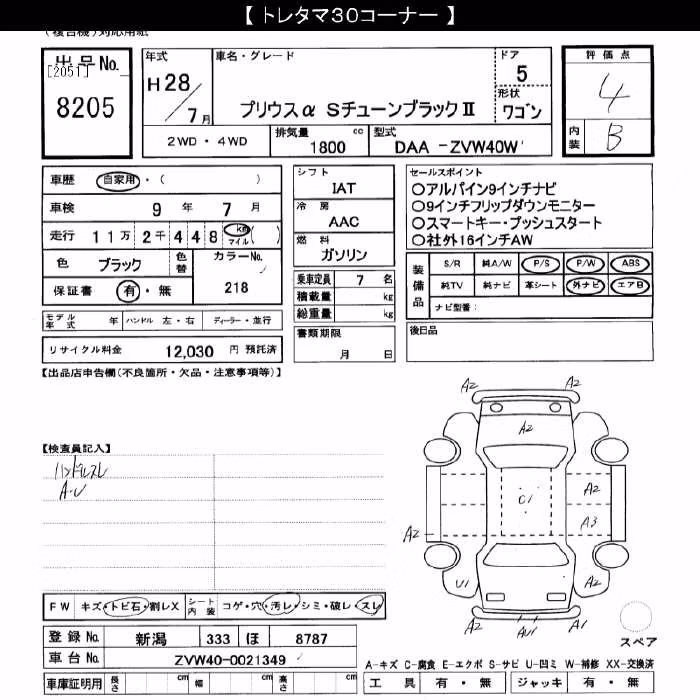 【 トレタマ30コーナー 】
(複合機)対応用紙
出品No.
[2051]
8205
年式
H28/7月
車名・グレード
プリウスα SチューンブラックⅡ
ドア
5
形状
ワゴン
2WD ・ 4WD
排気量
1800 cc
型式
DAA -ZVW40W
評価点
4
内装
B
車歴 自家用・( )
車検 9 年 7 月
走行 11万 2千 448 km マイル ( )
色 ブラック 色替
カラーNo.
218
保証書 有・無
モデル年式 年 ハンドル 左・右 ディーラー・並行
リサイクル料金 12,030 円 預託済
シフト
IAT
冷房
AAC
燃料
ガソリン
乗車定員 7 名
積載量 kg
総重量 kg
書類期限
月 日
セールスポイント
○アルパイン9インチナビ
○9インチフリップダウンモニター
○スマートキー・プッシュスタート
○社外16インチAW
装備品
S/R 純A/W P/S P/W ABS
純TV 純ナビ 革シート 外ナビ エアB
ナビ型番:
後日品
【出品店申告欄(不良箇所・欠品・注意事項等)】
【検査員記入】
ハンドルスレ
A・U
A2 A2
A2
C1
A2
A3
A2
U1
A2
A2 AU1 A2
スペア
FW キズ・トビ石・割レX シート内装 コゲ・穴・汚レ・シミ・破レ・スレ
登録No. 新潟 333 ほ 8787
車台No. ZVW40-0021349
車庫証明用 長さ cm 幅 cm 高さ cm
A-キズ C-腐食 E-エクボ S-サビ U-凹ミ W-補修 XX-交換済
工具 有・無 ジャッキ 有・無